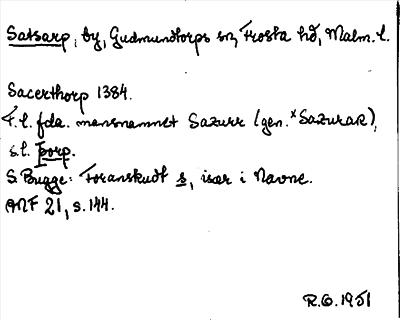 Satsarp, by, Gudmundtorps sn, Frosta hd, Malm. l.
Sacerthorp 1384.
F.l. fda. mansnamnet Sazurr (gen. *Sazurar),
s.l. þorp.
S. Bugge: Foranskudt s, især i Navne.
ANF 21, s. 144.
R.O. 1951